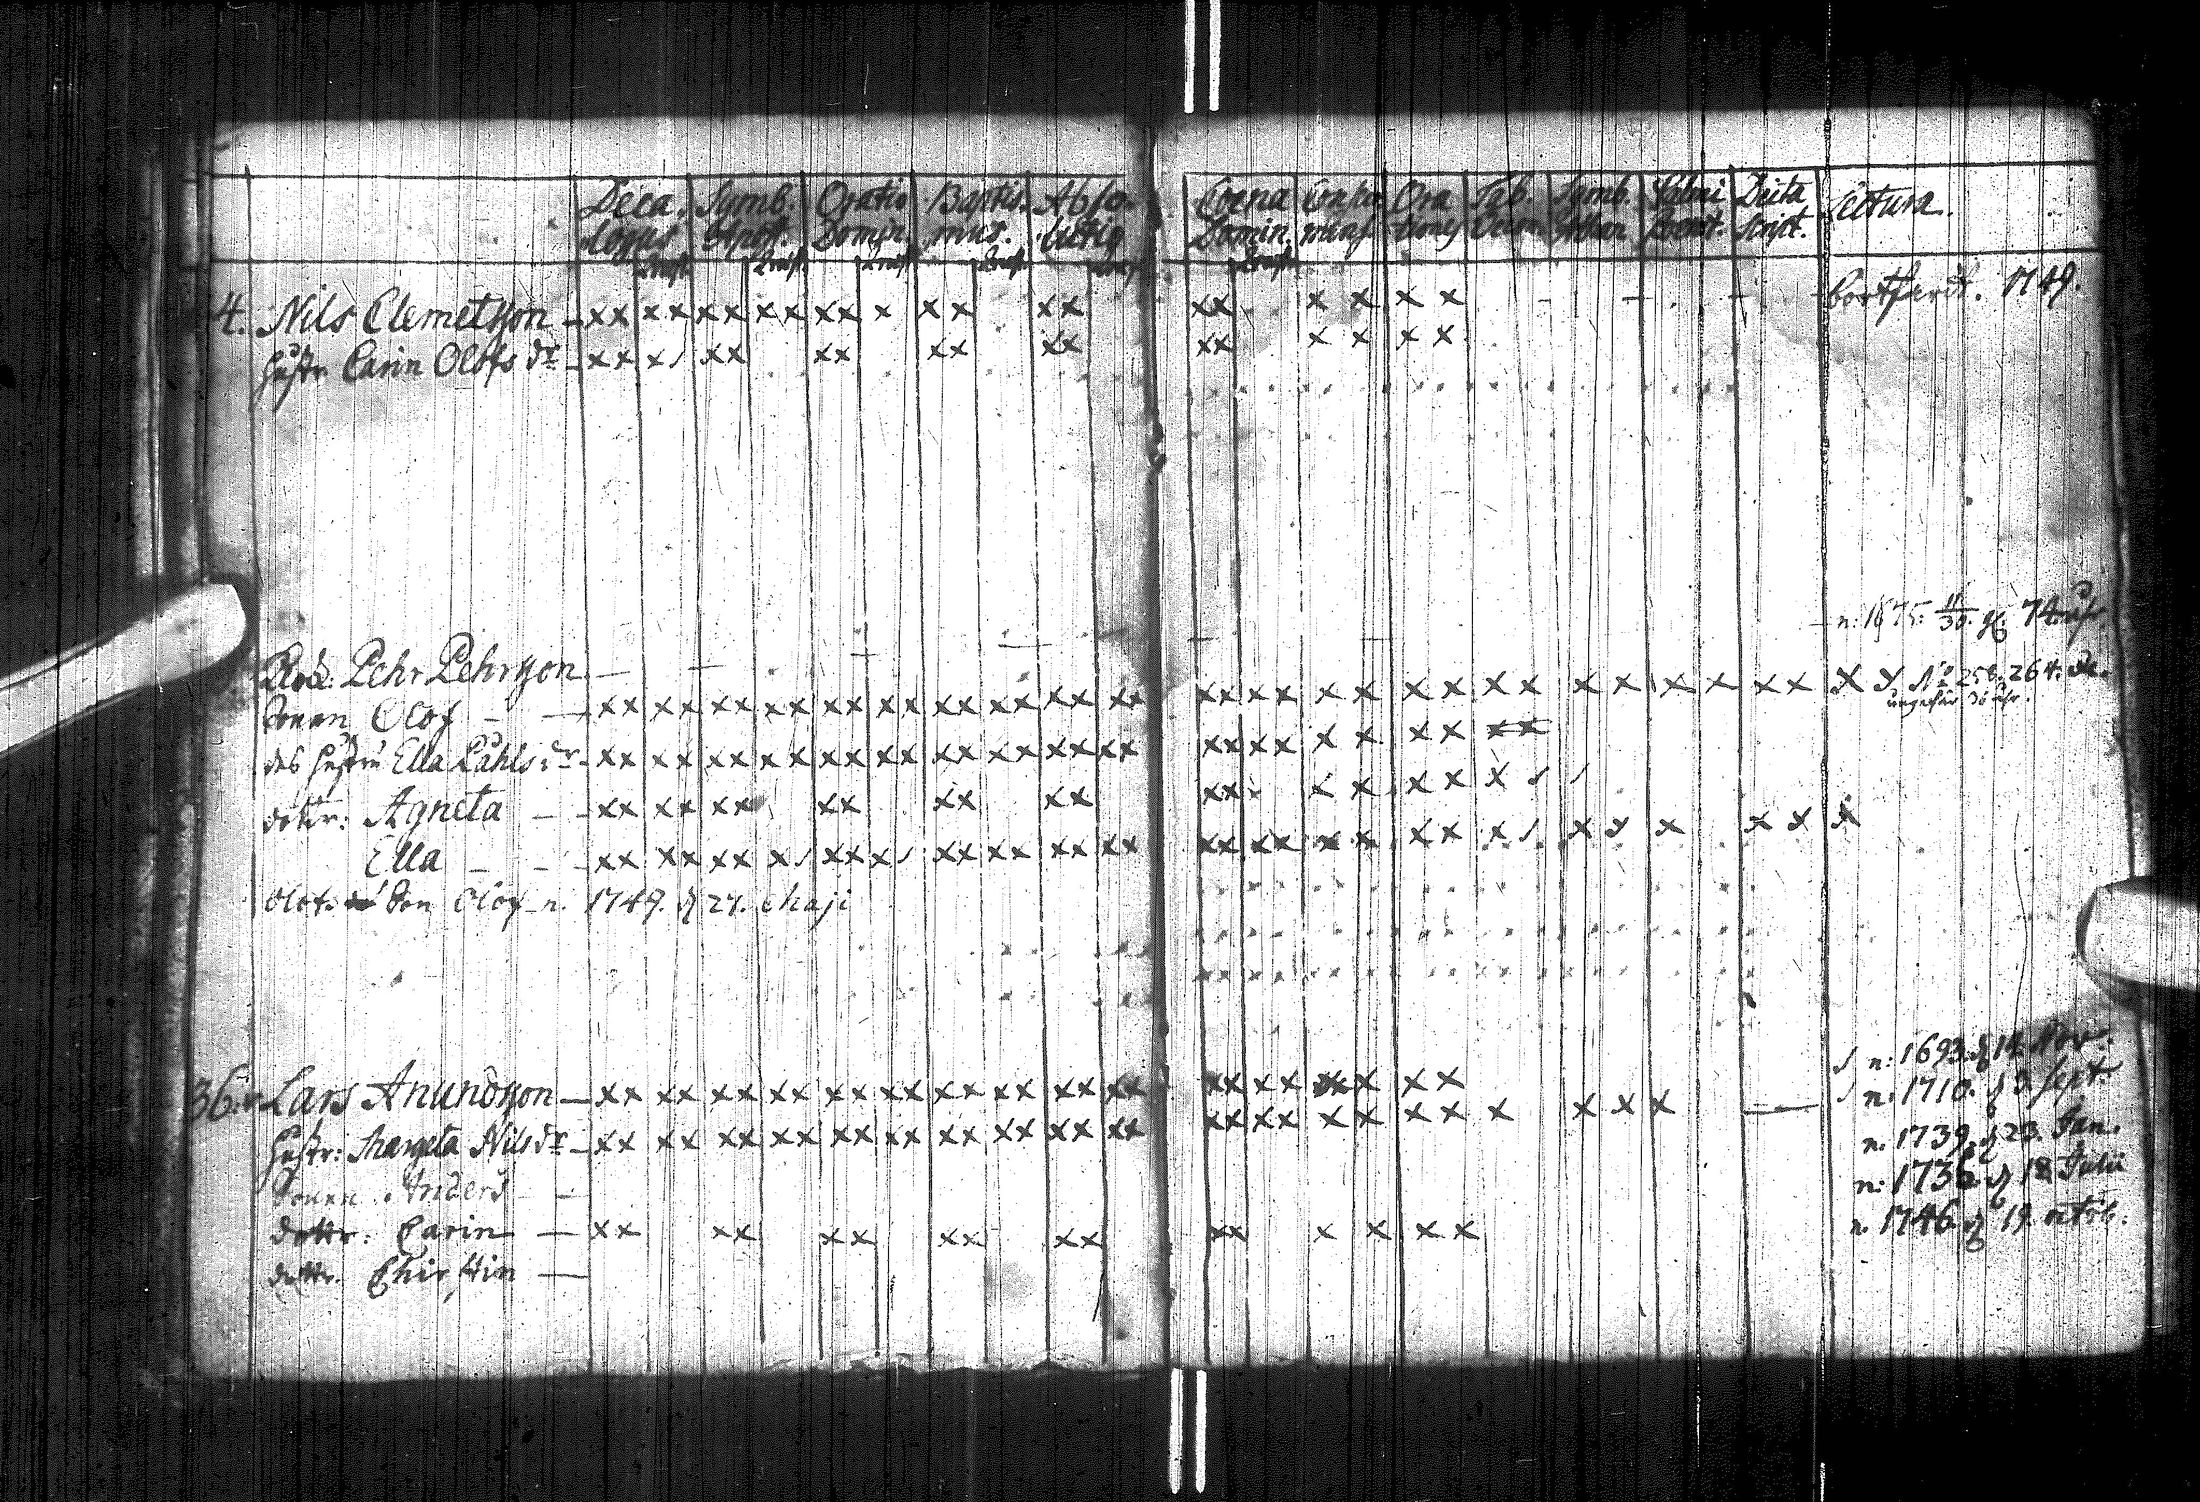 Deca- Symb. Oratio Baptis- Abso- Coena Ora Tab. Symb. Psalmi Dicta Lectura.
logus Apost. Domin. mus. lutio Domin. tiones Oecon. Athan. Poenit. Script.
4. Nils Clemetsson – xx xx xx xx xx x xx xx xx x x x x bortflytt. 1749.
hustr Carin Olofs dr – xx x/ xx xx xx xx xx x x x x
n: 1675. 11/30. 74
Pehr Pehrsson –
Sonen Olof – xx xx xx xx xx xx xx xx xx xx xx xx x x x x x x x x x x x x x x No 258. 264.
ungefär 36 åhr.
des hustru Ella Påhls dr – xx xx xx xx xx xx xx xx xx xx xx xx x x x x xx
dottr: Agneta – xx xx xx xx xx xx xx x x x x x / /
Ella – xx xx xx x/ xx x/ xx xx xx xx xx xx x x x x x / x x x x x x
Olofs Son Olof n. 1749. d 27. Maji
36. Lars Anundsson – xx xx xx xx xx xx xx xx xx xx xx xx x x x n: 1693. d 14. Nov.
hustr: Margeta Nils dr – xx xx xx xx xx xx xx xx xx xx xx xx x x x x x x x x n. 1710. d 3. Sept.
Sonen Anders – n. 1739. d 23. Jan.
dottr: Carin – xx xx xx xx xx xx x x x x n: 1736. d 18 Julii
dottr. Chirstin – n. 1746. d 19. octob.